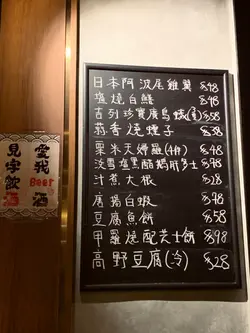 日本阿波尾雞翼 $48
塩燒白鱔 $48
吉列珍寶廣島蠔(隻) $58
蒜香燒蟶子 $38
粟米天婦羅(4件) $48
淡雪塩黑醋鵝肝多士 $48
汁煮大根 $28
唐揚白蝦 $98
豆腐魚餅 $58
甲羅燒配芝士餅 $98
高野豆腐(冷) $28
愛我 Beer 酒
見字飲酒